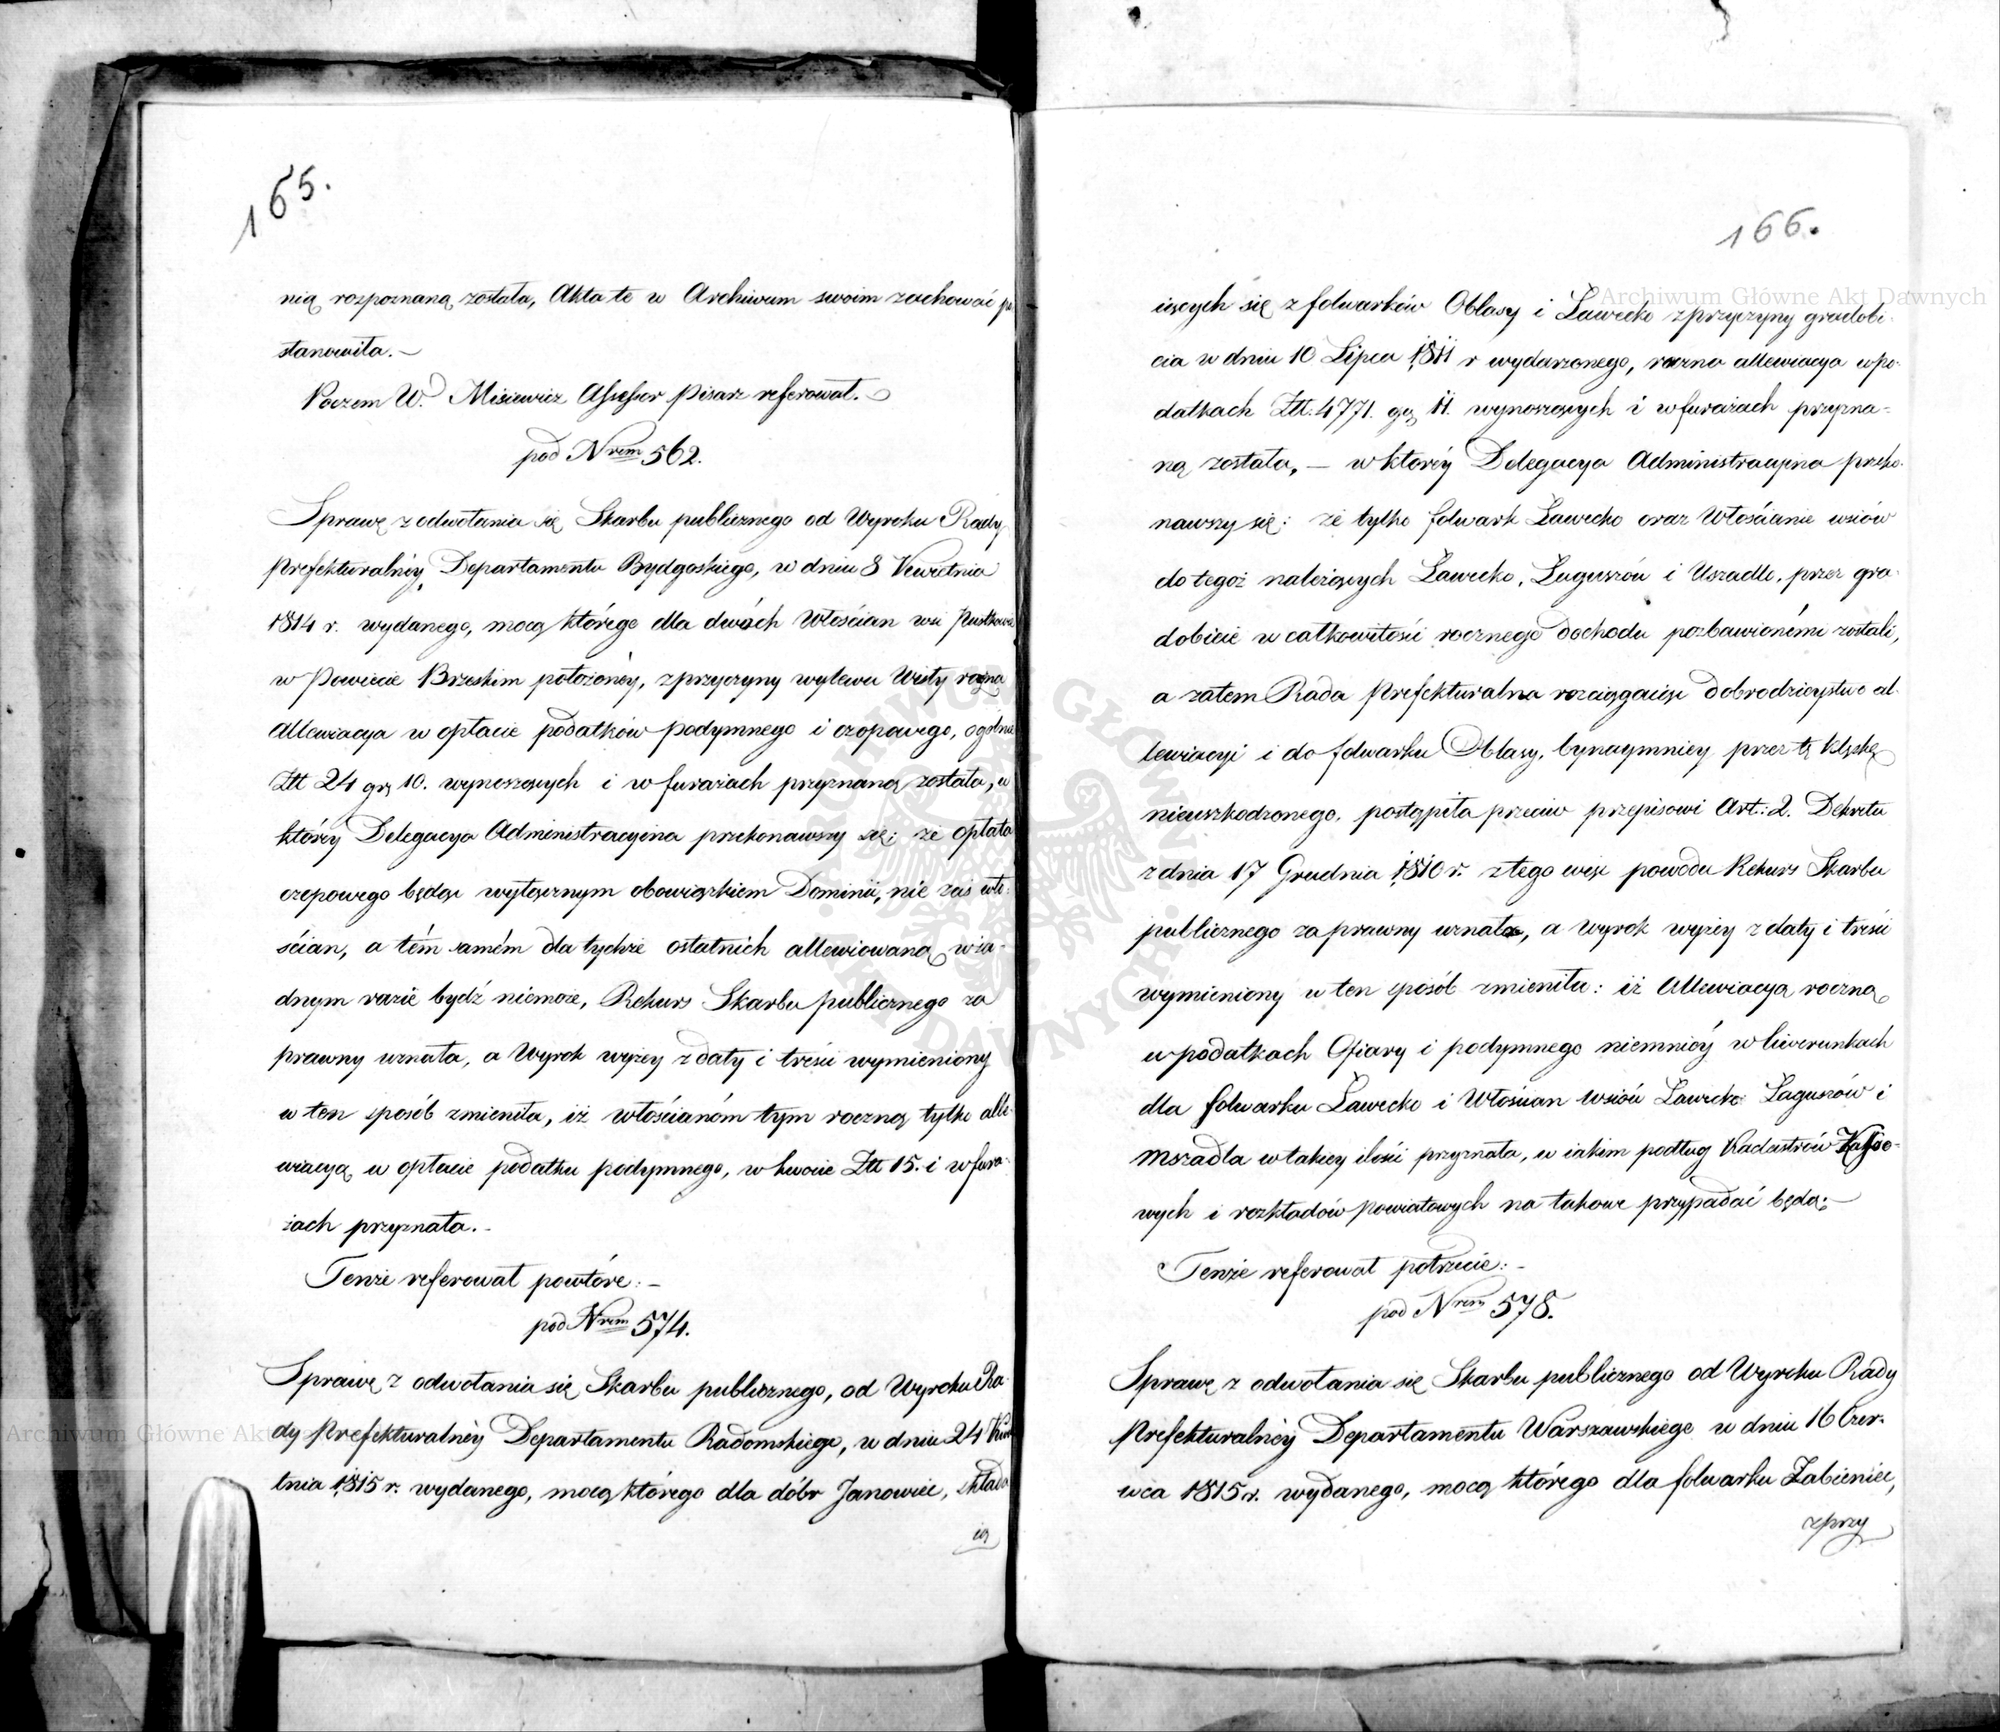 165.
nią rozpoznaną została, Akta te w Archiwum swoim zachować po
stanowiła.—
Poczem W. Misiewicz Assessor Pisarz referował.—
pod Nrem 562.
Sprawę z odwołania się Skarbu publicznego od Wyroku Rady
Prefekturalnéy Departamentu Bydgoskiego, w dniu 8 Kwietnia
1814 r. wydanego, mocą którego dla dwóch Włościan wsi
w Powiecie Brzeskim położonéy, z przyczyny wylewu Wisły roczna
allewiacya w opłacie podatków podymnego i czopowego, ogólnie
Złt 24 gr 10. wynoszących i w furażach przyznaną została, w
któréy Delegacya Administracyina przekonawszy się; że opłata
czopowego będąc wyłącznym obowiązkiem Dominii, nie zaś wło-
ścian, a tém samém dla tychże ostatnich allewiowaną w ża-
dnym razie bydź niemoże, Rekurs Skarbu publicznego za
prawny uznała, a Wyrok wyżey z daty i treści wymieniony
w ten sposób zmieniła, iż włościanóm tym roczną tylko alle-
wiacyą w opłacie podatku podymnego, w kwocie Złt 15. i w fura-
żach przyznała.—
Tenże referował powtóre:—
pod Nrem 574.
Sprawę z odwołania się Skarbu publicznego, od Wyroku Ra-
dy Prefekturalnéy Departamentu Radomskiego, w dniu 24 Kwie
tnia 1815 r. wydanego, mocą którego dla dóbr Janowiec, składa
ią
166.
iących się z folwarków Oblasy i Ławecko z przyczyny gradobi-
cia w dniu 10 Lipca 1811 r wydarzonego, roczna allewiacya w po-
datkach Złt. 4771. gr 11. wynoszących i w furażach przyzna-
ną została,— w któréy Delegacya Administracyina przeko-
nawszy się: że tylko folwark Ławecko oraz Włościanie wsiów
do tegoż należących Ławecko, Łaguszów i Uszadle, przez gra-
dobicie w całkowitości rocznego dochodu pozbawionémi zostali,
a zatem Rada Prefekturalna rozciągaiąc dobrodzieystwo al-
lewiacyi i do folwarku Oblasy, bynaymniey przez tę klęskę
nieuszkodzonego, postąpiła przeciw przepisowi Art: 2. Dekretu
z dnia 17 Grudnia 1810 r. z tego więc powodu Rekurs Skarbu
publicznego za prawny uznała, a Wyrok wyżey z daty i treści
wymieniony w ten sposób zmieniła: iż Allewiacyą roczną
w podatkach Ofiary i podymnego niemniéy w liwerunkach
dla folwarku Ławecko i Włościan wsiów Ławecko Łaguszów i
Mszadla w takiey ilości przyznała, w iakim podług Kadastrów Kasso-
wych i rozkładów powiatowych na takowe przypadać będą:—
Tenże referował potrzecie:—
pod Nrem 578.
Sprawę z odwołania się Skarbu publicznego od Wyroku Rady
Prefekturalnéy Departamentu Warszawskiego w dniu 16 Czer-
wca 1815 r. wydanego, mocą którego dla folwarku Żabieniec,
z przy
Archiwum Główne Akt Dawnych